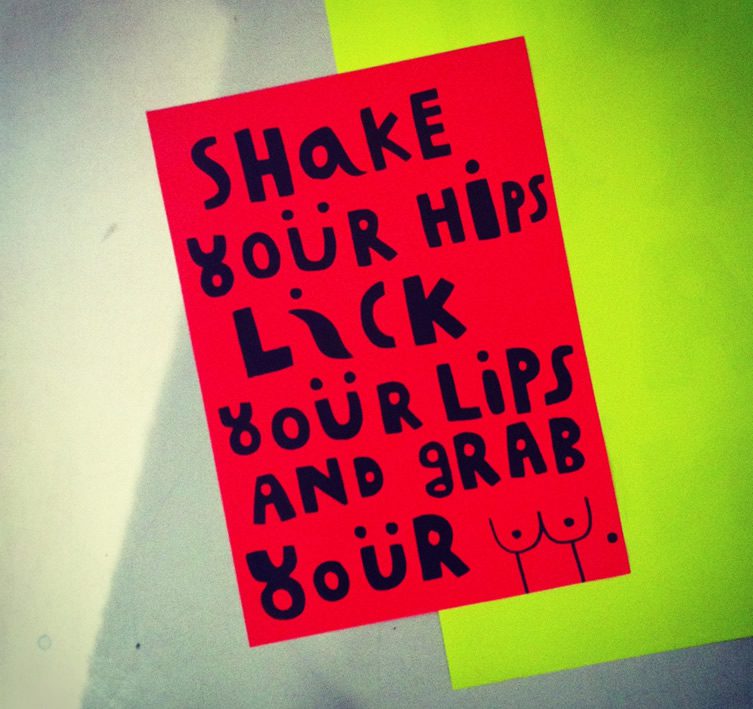 SHaKE
YOÜR HiPS
LiCK
YOÜR LiPS
AND gRAB
YOÜR .